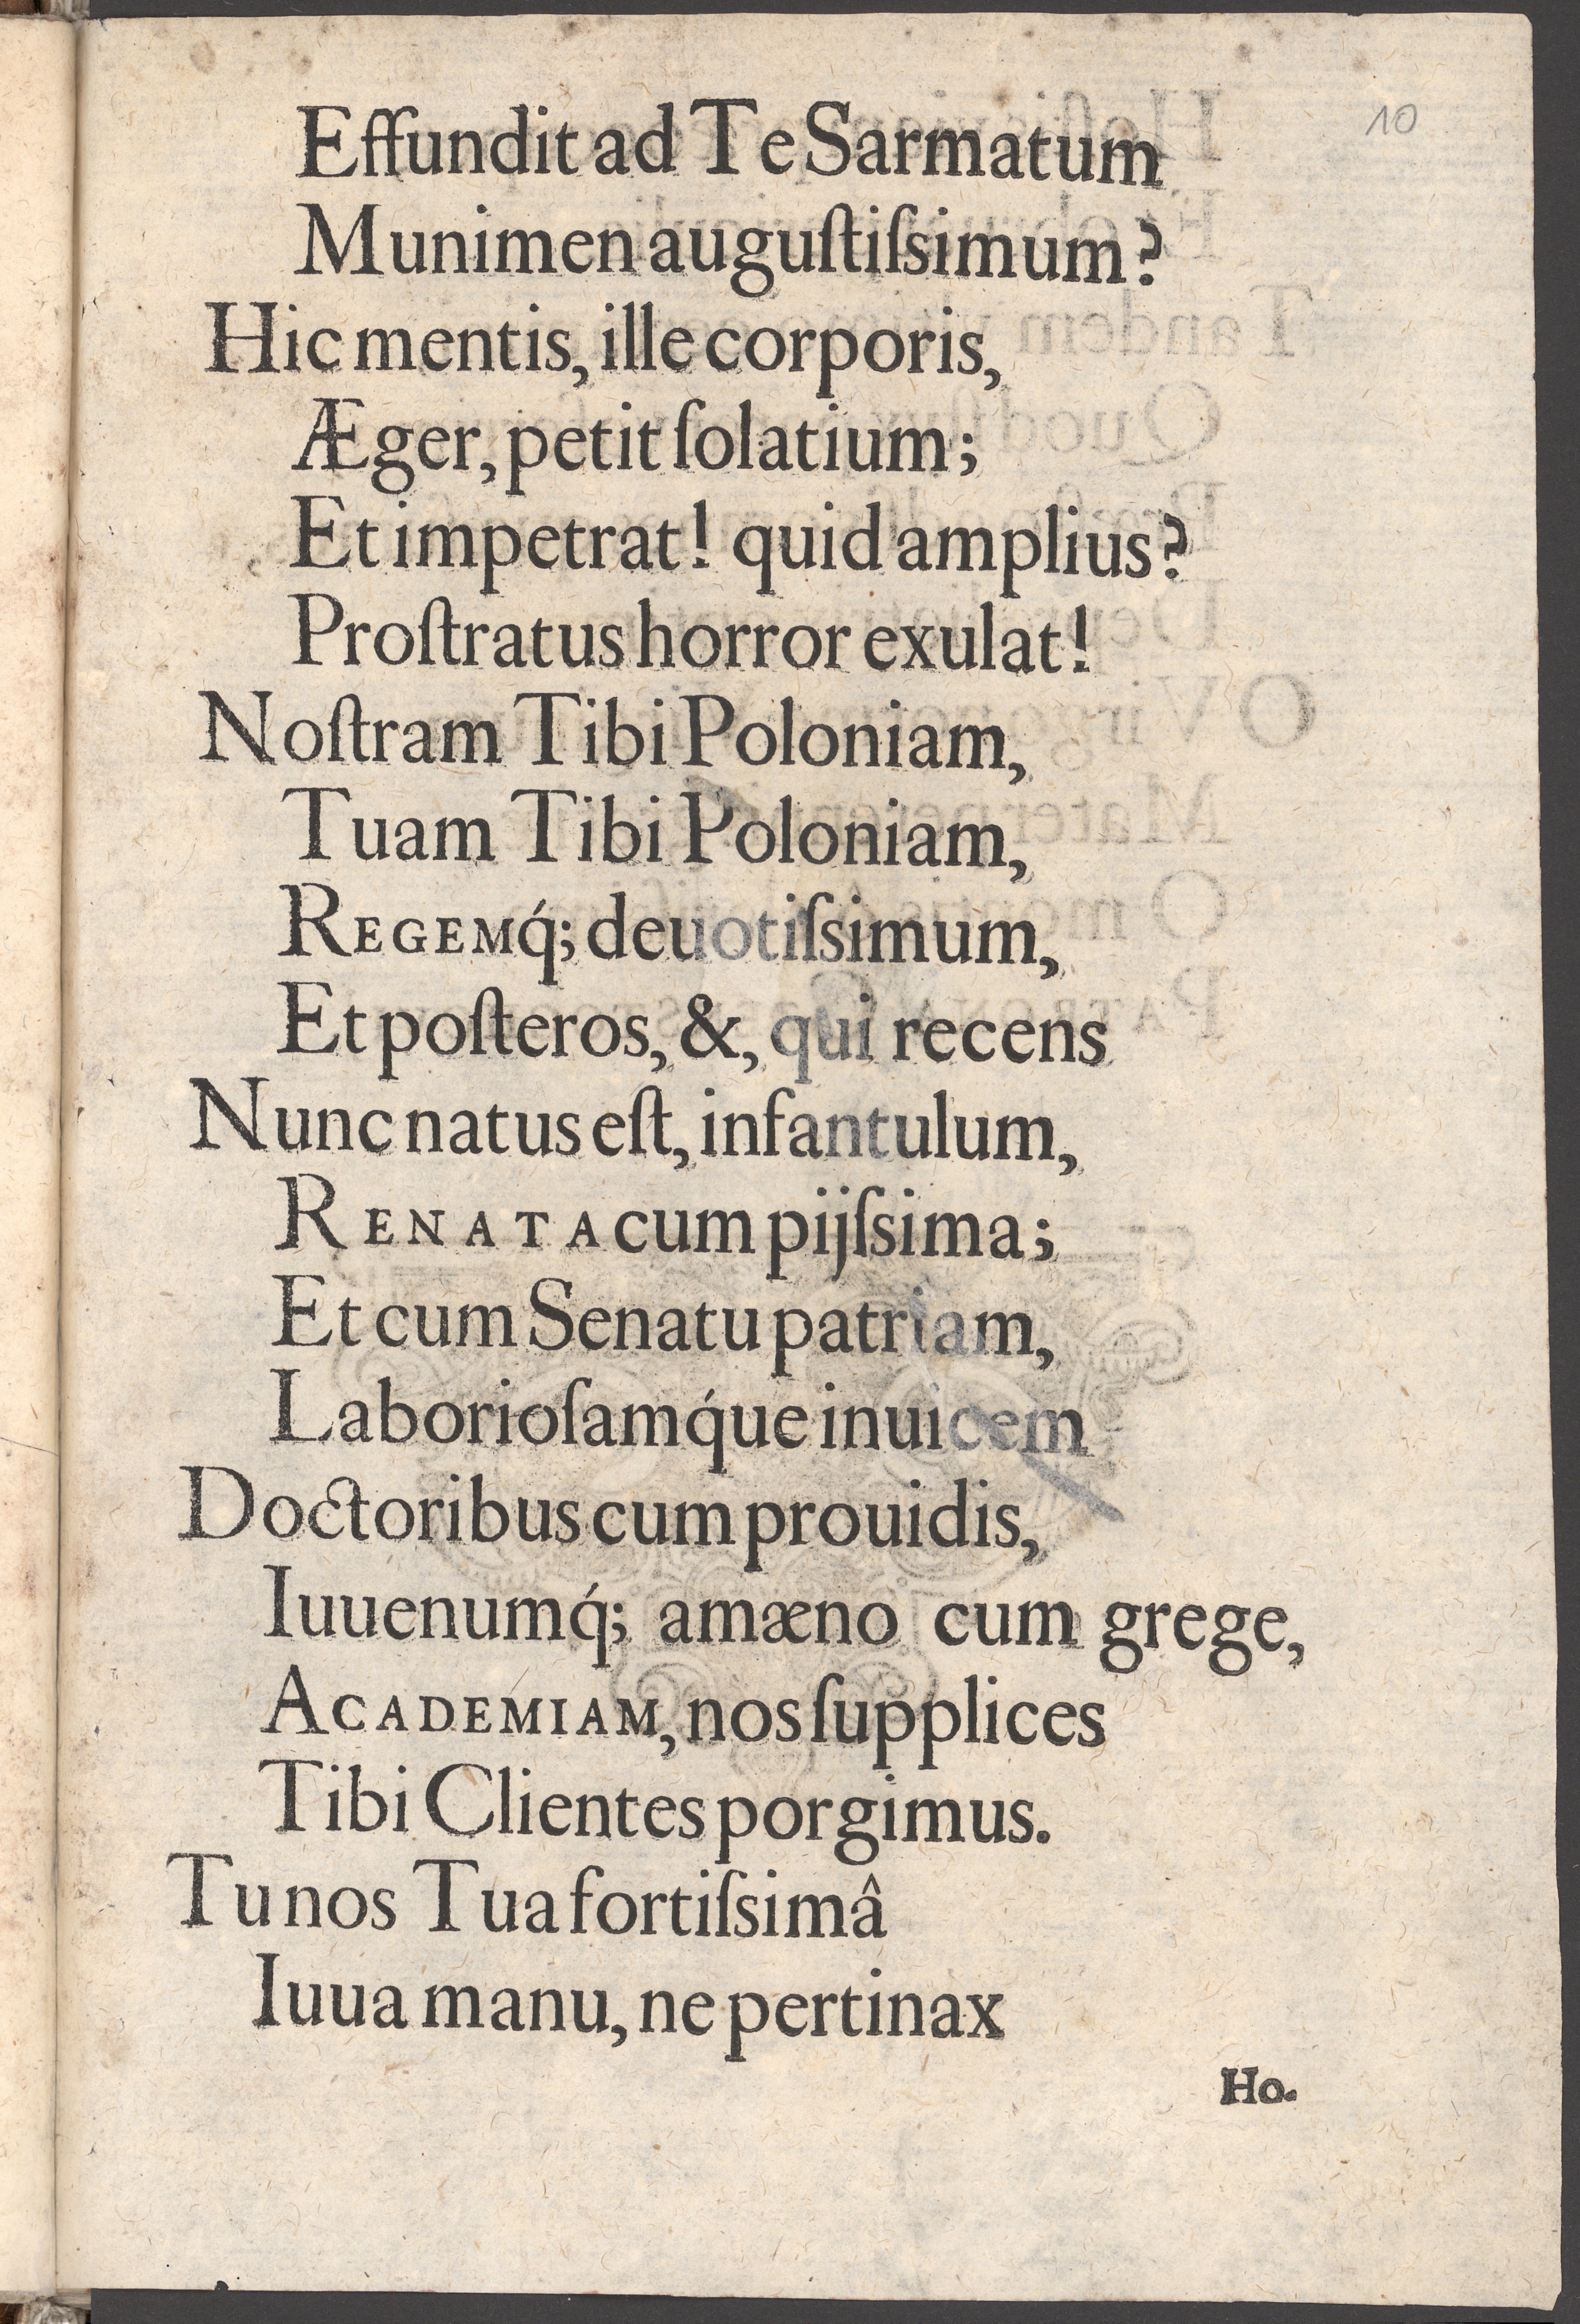 10
Effundit ad Te Sarmatum
Munimen auguſtiſsimum?
Hic mentis, ille corporis,
Æger, petit ſolatium;
Et impetrat! quid amplius?
Proſtratus horror exulat!
Noſtram Tibi Poloniam,
Tuam Tibi Poloniam,
REGEMq́; deuotiſsimum,
Et poſteros, &, qui recens
Nunc natus eſt, infantulum,
RENATA cum pijſsima;
Et cum Senatu patriam,
Laborioſamq́ue inuicem
Doctoribus cum prouidis,
Iuuenumq́; amæno cum grege,
ACADEMIAM, nos ſupplices
Tibi Clientes porgimus.
Tu nos Tua fortiſsimâ
Iuua manu, ne pertinax
Ho-